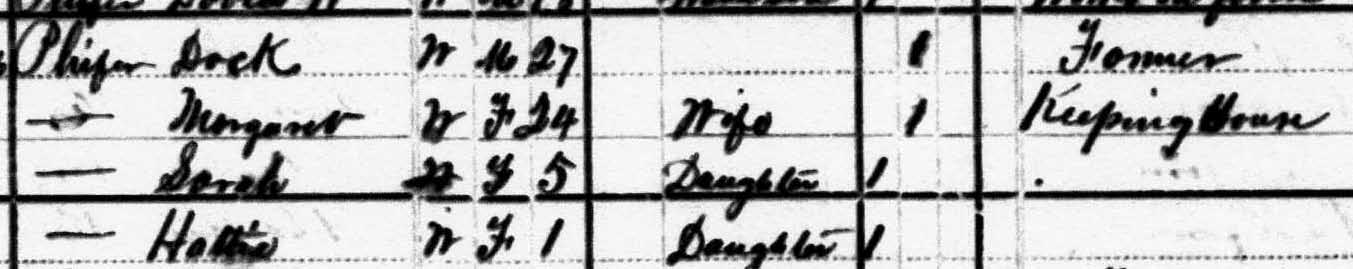 Phifer Dock W M 27 1 Farmer
— Margaret W F 24 Wife 1 Keeping House
— Sarah W F 5 Daughter 1
— Hattie W F 1 Daughter 1